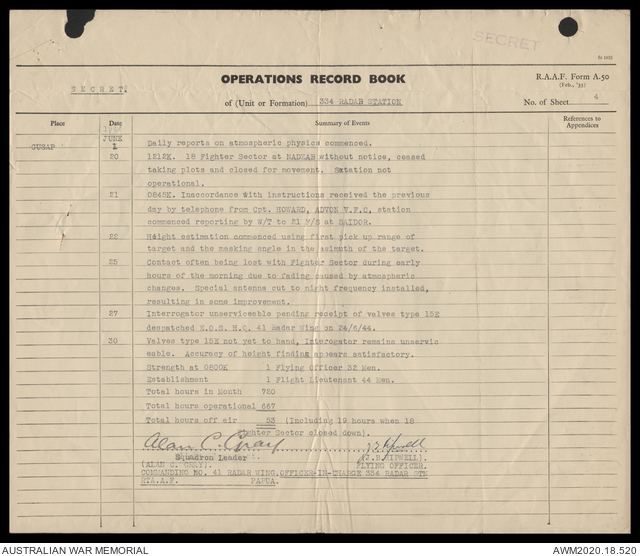 SECRET
50 1935
R.A.A.F. Form A.50
(Feb., '35)
SECRET.
OPERATIONS RECORD BOOK
of (Unit or Formation) 334 RADAR STATION
No. of Sheet 4
Place Date Summary of Events References to Appendices
JUNE
GUSAP 1 Daily reports on atmospheric physics commenced.
20 1212K. 18 Fighter Sector at NADZAB without notice, ceased
taking plots and closed for movement. Station not
operational.
21 0845K. Inaccordance with instructions received the previous
day by telephone from Cpt. HOWARD, ADVON V.F.C, station
commenced reporting by W/T to 21 F/S at DAIDOR.
22 Height estimation commenced using first pick up range of
target and the masking angle in the azimuth of the target.
25 Contact often being lost with Fighter Sector during early
hours of the morning due to fading caused by atmospheric
changes. Special antenna cut to night frequency installed,
resulting in some improvement.
27 Interrogator unserviceable pending receipt of valves type 15E
despatched E.O.S. H.Q. 41 Radar Wing on 24/6/44.
30 Valves type 15E not yet to hand, Interogator remains unservic
eable. Accuracy of height finding appears satisfactory.
Strength at 0800K 1 Flying Officer 32 Men.
Establishment 1 Flight Lieutenant 44 Men.
Total hours in Month 720
Total hours operational 667
Total hours off air 53 (Including 19 hours when 18
Fighter Sector closed down).
Alan C. Gray
Squadron Leader
(ALAN C. GRAY). (J.B.HIPWELL).
FLYING OFFICER.
COMMANDING NO. 41 RADAR WING. OFFICER-IN-CHARGE 334 RADAR STN
R.A.F. PAPUA.
AUSTRALIAN WAR MEMORIAL
AWM2020.18.520